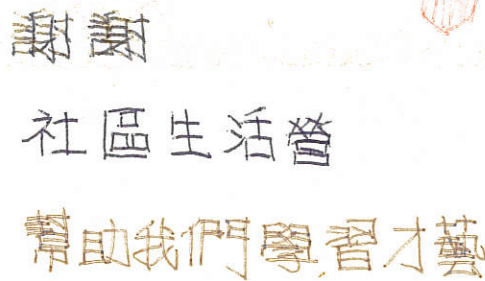 謝謝
社區生活營
幫助我們學習才藝